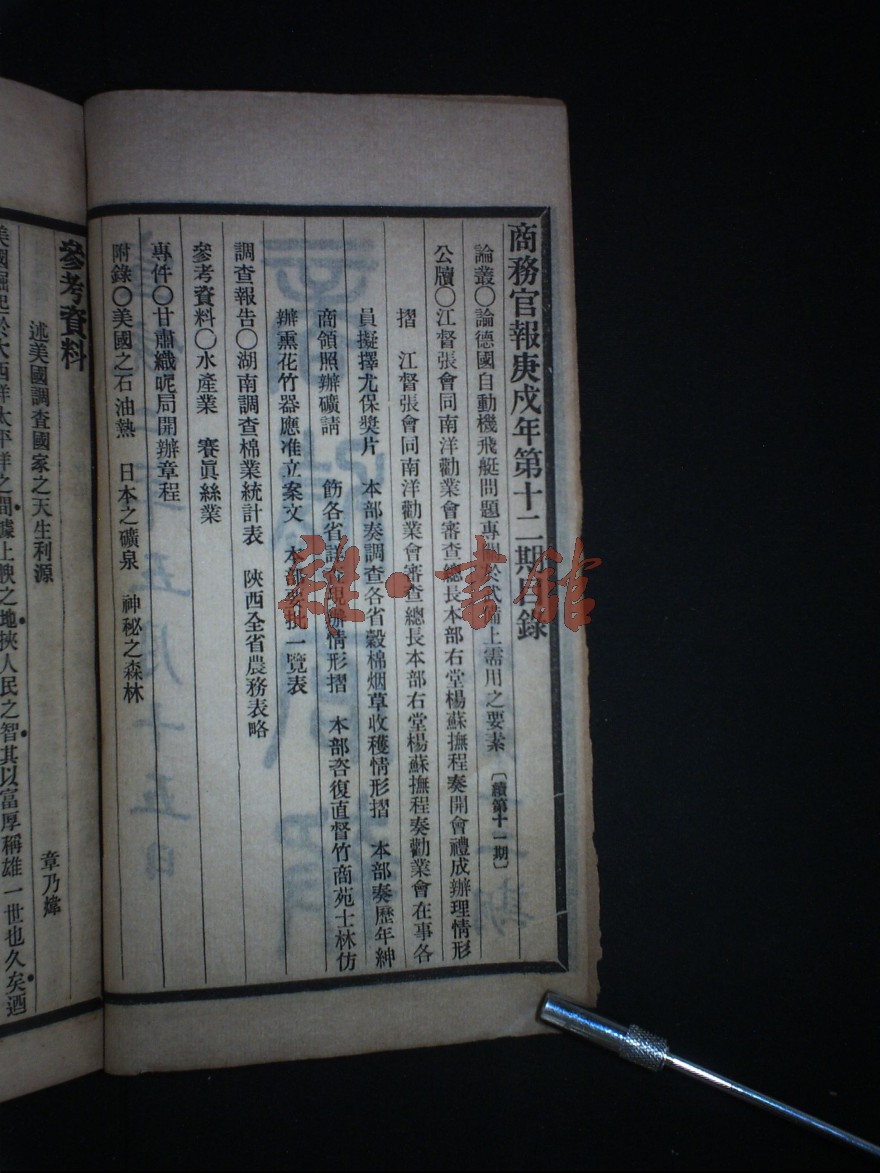 商務官報庚戍年第十二期目錄
論叢○論德國自動機飛艇問題專關於武備上需用之要素〔續第十一期〕
公牘○江督張會同南洋勸業會審查總長本部右堂楊蘇撫程奏開會禮成辦理情形
摺　江督張會同南洋勸業會審查總長本部右堂楊蘇撫程奏勸業會在事各
員擬擇尤保獎片　本部奏調查各省穀棉烟草收穫情形摺　本部奏歷年紳
商領照辦礦請　飭各省詳查現辦情形摺　本部咨復直督竹商苑士林仿
辦熏花竹器應准立案文　本部要批一覽表
調查報告○湖南調查棉業統計表　陝西全省農務表略
參考資料○水產業　賽眞絲業
專件○甘肅織呢局開辦章程
附錄○美國之石油熱　日本之礦泉　神秘之森林
參考資料
述美國調查國家之天生利源　章乃煒
美國崛起於大西洋太平洋之間據上腴之地挾人民之智其以富厚稱雄一世也久矣迺
雜·書館